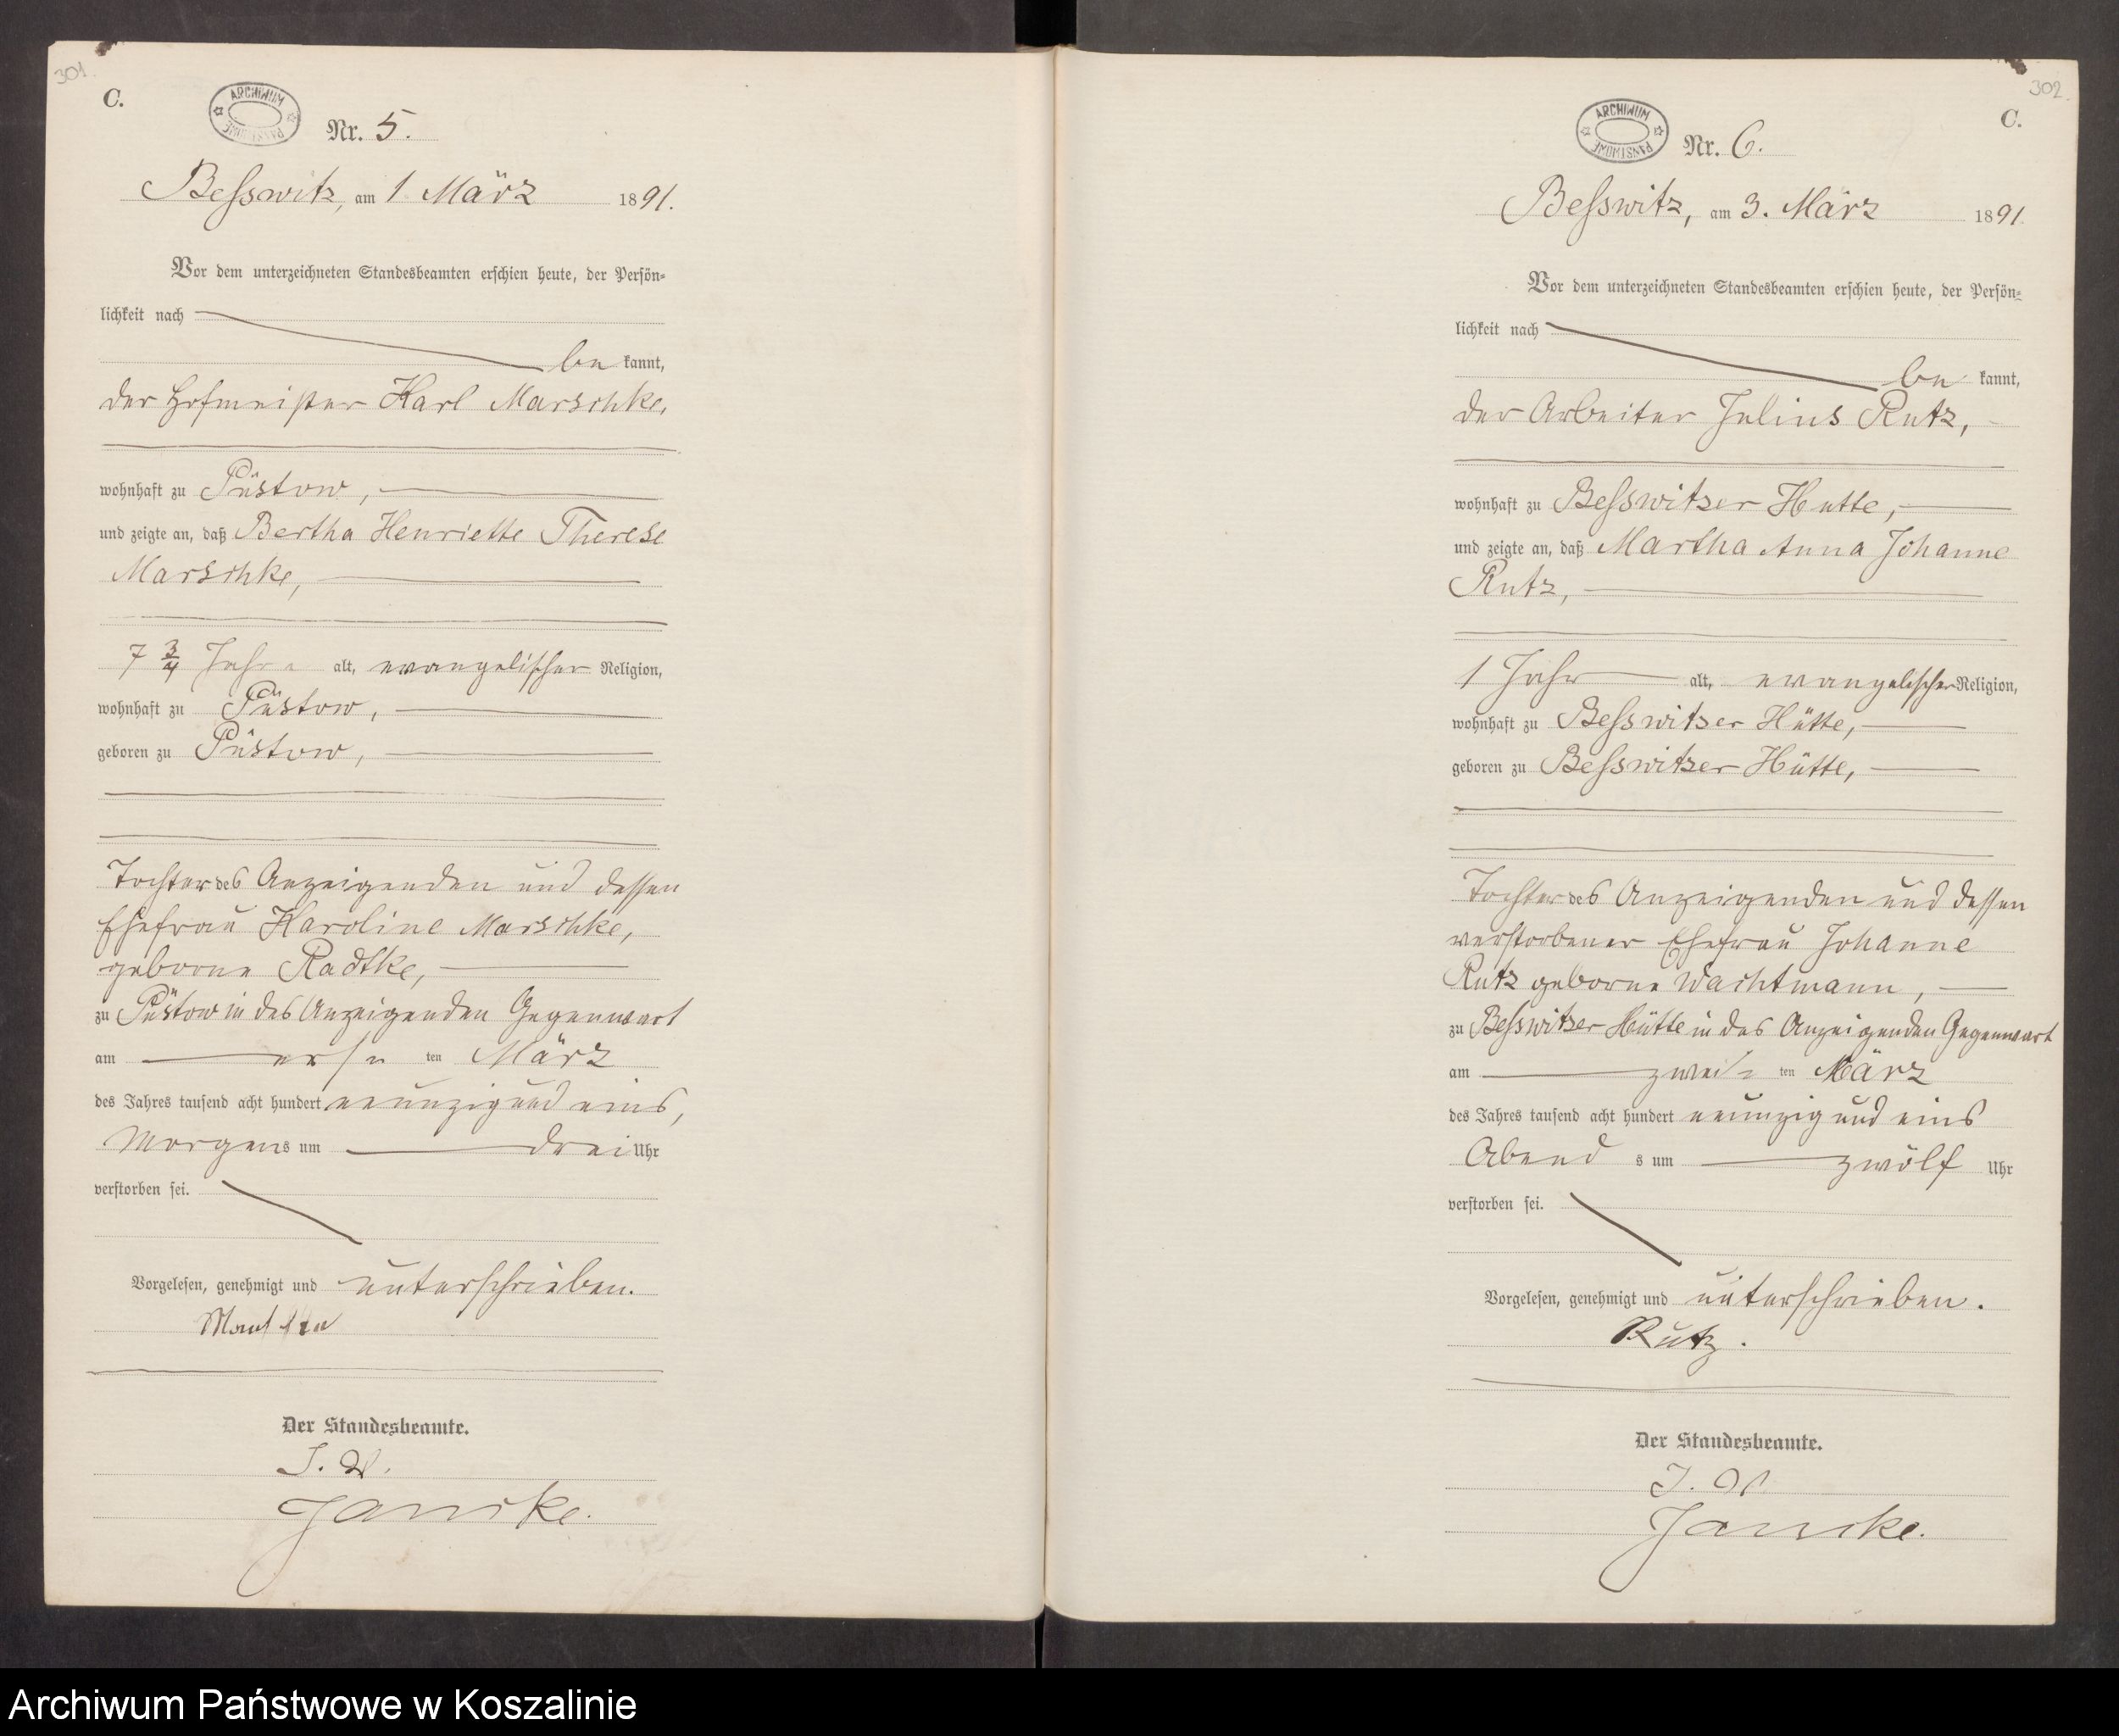 301
C.
ARCHIWUM PAŃSTWOWE
Nr. 5.
Beſswitz, am 1 März 1891.
Vor dem unterzeichneten Standesbeamten erſchien heute, der Perſön-
lichkeit nach
be kannt,
der Hofmeiſter Karl Marschke,
wohnhaft zu Püstow,
und zeigte an, daß Bertha Henriette Therese
Marschke,
7 3/4 Jahre alt, evangeliſcher Religion,
wohnhaft zu Püstow,
geboren zu Püstow,
Tochter des Anzeigenden und deſſen
Ehefrau Karoline Marschke,
geborne Radtke,
zu Püstow in des Anzeigenden Gegenwart
am erſten März
des Jahres tauſend acht hundert neunzig und eins,
Morgens um drei Uhr
verſtorben ſei.
Vorgeleſen, genehmigt und unterſchrieben.
Der Standesbeamte.
J. V.
Jancke.
302
C.
ARCHIWUM PAŃSTWOWE
Nr. 6.
Beſswitz, am 3. März 1891.
Vor dem unterzeichneten Standesbeamten erſchien heute, der Perſön-
lichkeit nach
be kannt,
der Arbeiter Julius Rutz,
wohnhaft zu Beſswitzer Hutte,
und zeigte an, daß Martha Anna Johanne
Rutz,
1 Jahr alt, evangeliſcher Religion,
wohnhaft zu Beſswitzer Hütte,
geboren zu Beſswitzer Hütte,
Tochter des Anzeigenden und deſſen
verſtorbener Ehefrau Johanne
Rutz geborne Wachtmann,
zu Beſswitzer Hütte in des Anzeigenden Gegenwart
am zweiten März
des Jahres tauſend acht hundert neunzig und eins
Abends um zwölf Uhr
verſtorben ſei.
Vorgeleſen, genehmigt und unterſchrieben.
Rutz.
Der Standesbeamte.
J. V.
Jancke.
Archiwum Państwowe w Koszalinie